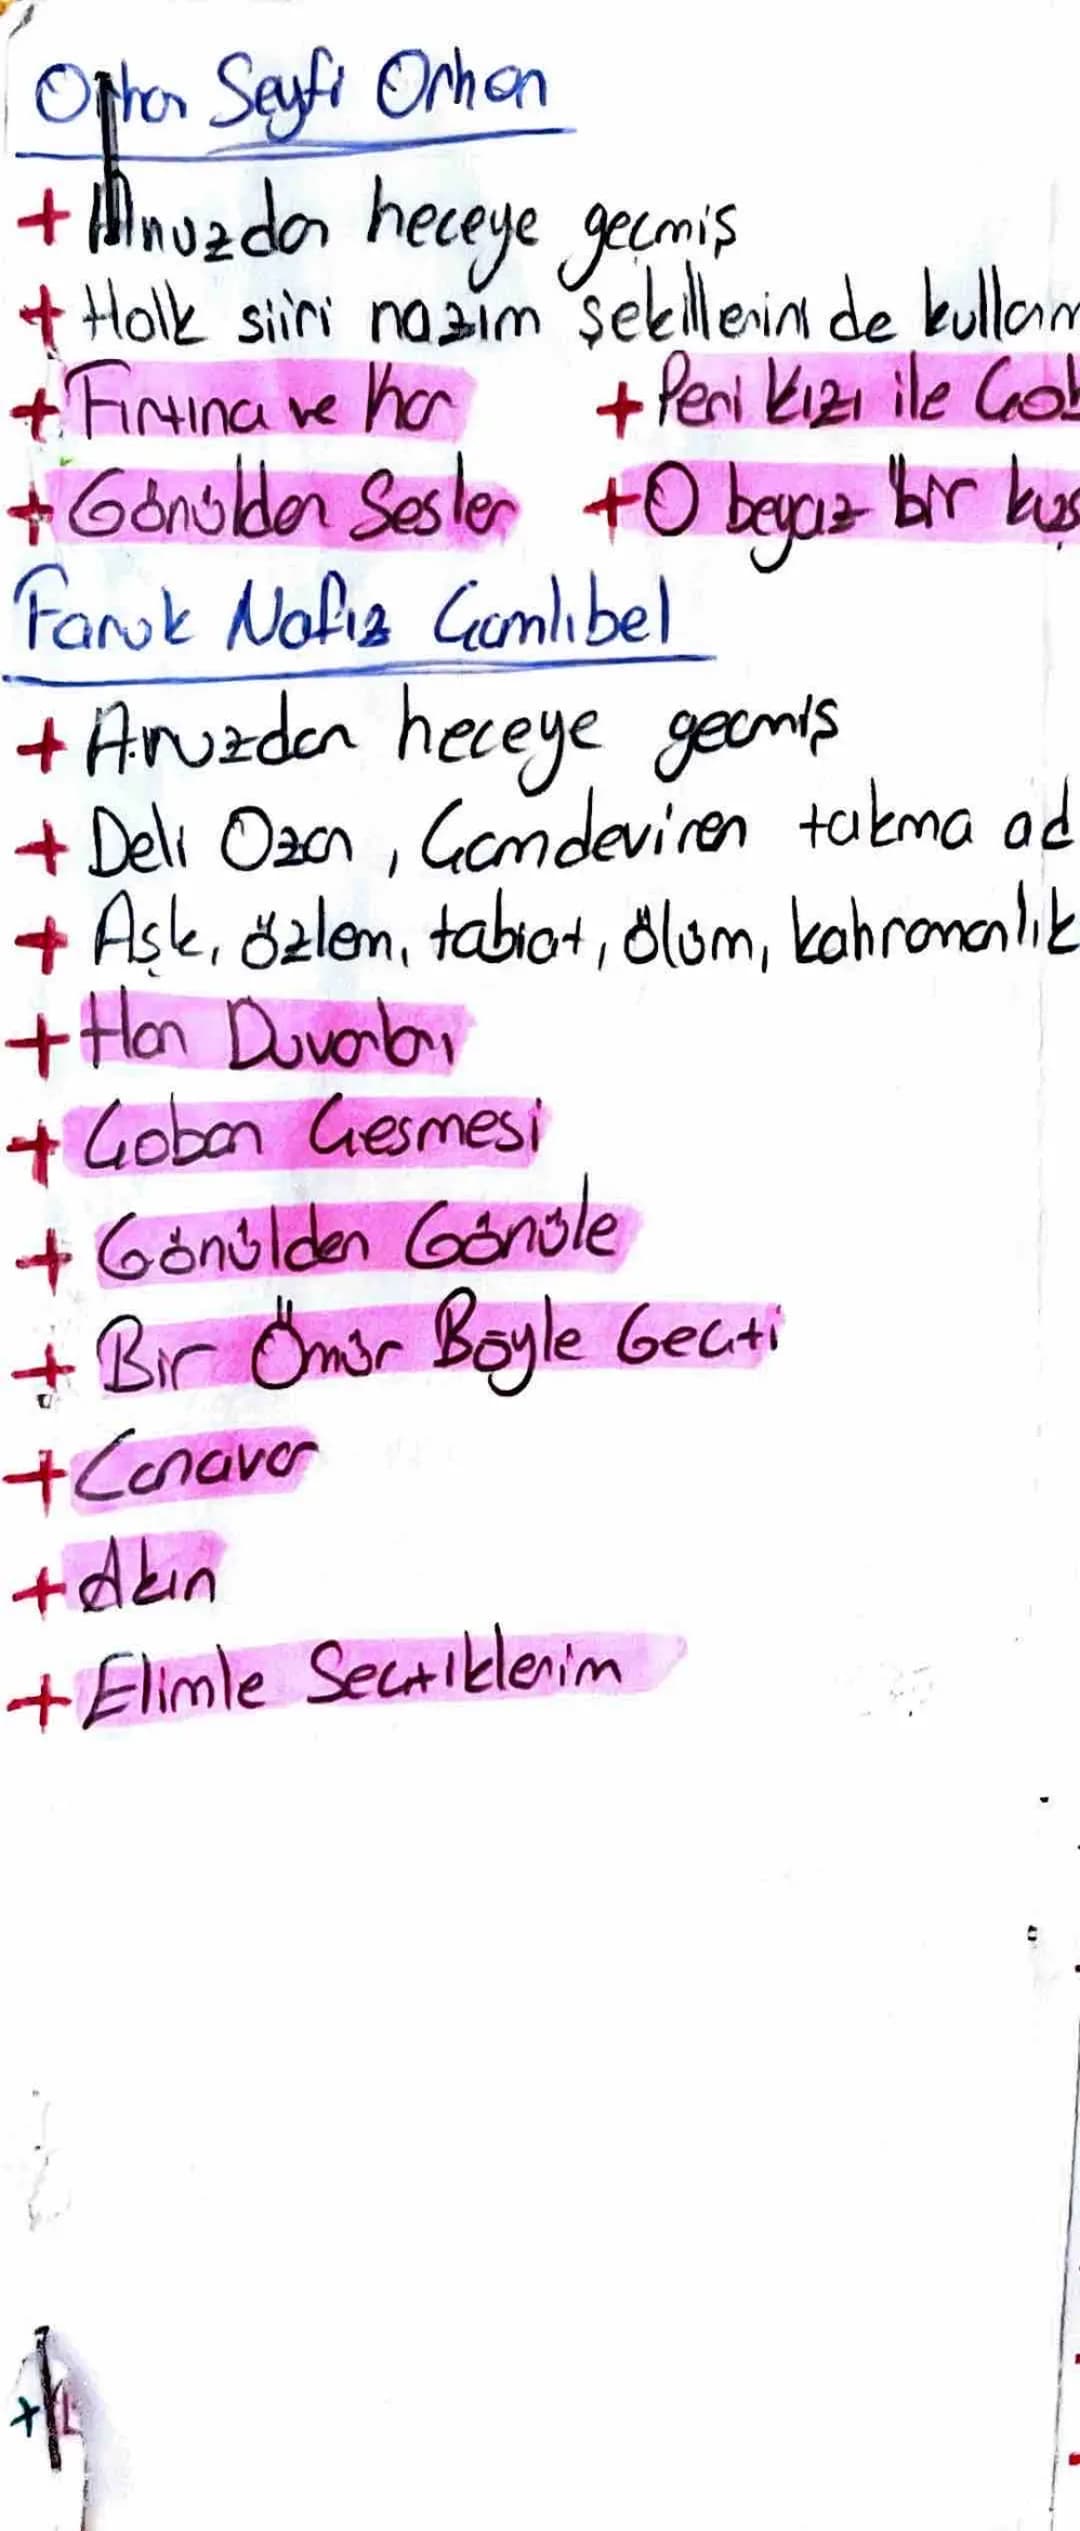 Orhan Seyfi Orhon
+ Aruzdan heceye geçmiş
+ Halk şiiri nazım şekillerini de kullanm
+ Fırtına ve Kar + Peri Kızı ile Çob
+ Gönülden Sesler + O beyaz bir kuş
Faruk Nafiz Çamlıbel
+ Aruzdan heceye geçmiş
+ Deli Ozan, Çamdeviren takma ad
+ Aşk, özlem, tabiat, ölüm, kahramanlık
+ Han Duvarları
+ Çoban Çeşmesi
+ Gönülden Gönüle
+ Bir Ömür Böyle Geçti
+ Canavar
+ Akın
+ Elimle Seçtiklerim